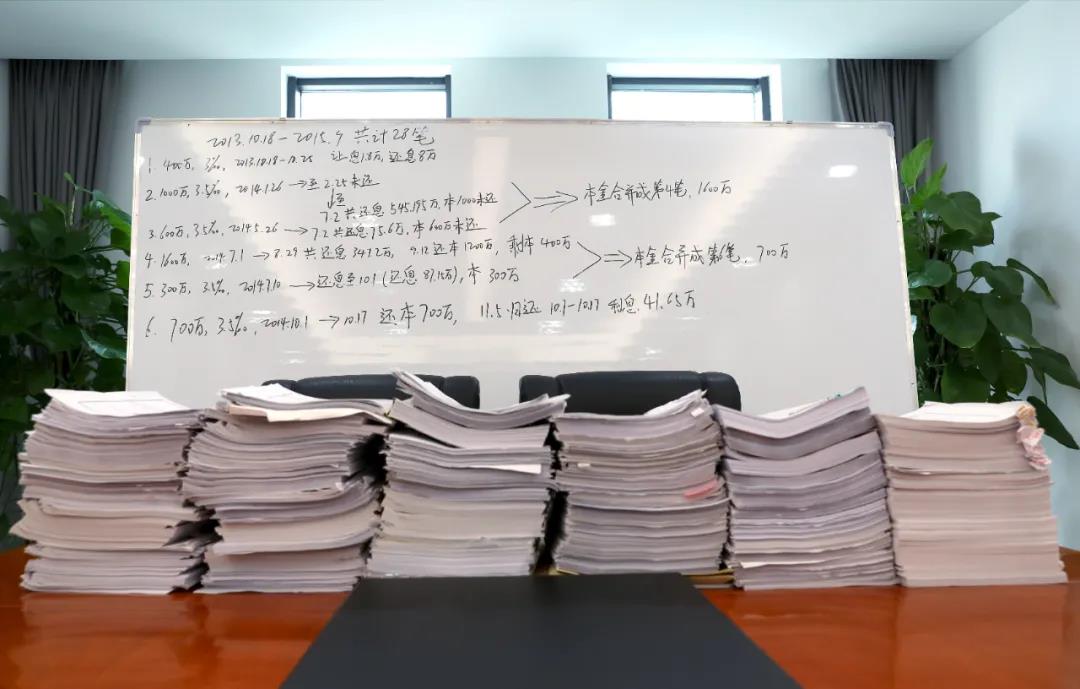 2013.10.18-2015.9 共计28笔
1. 400万, 3‰, 2013.10.18-10.25 让息1.8万, 还息8万
2. 1000万, 3.5‰, 2014.1.26→至2.25未还
7.2共还息545.195万, 本1000未还
⇒本金合并成第4笔, 1600万
3. 600万, 3.5‰, 2014.5.26→7.2共还息75.6万, 本600万未还
4. 1600万, 2014.7.1→8.29共还息347.2万, 9.12还本1200万, 剩本400万
⇒本金合并成第6笔, 700万
5. 300万, 3.5‰, 2014.7.10→还息至10.1(还息87.15万), 本300万
6. 700万, 3.5‰, 2014.10.1→10.17 还本700万, 11.5归还10.1-10.17利息41.65万